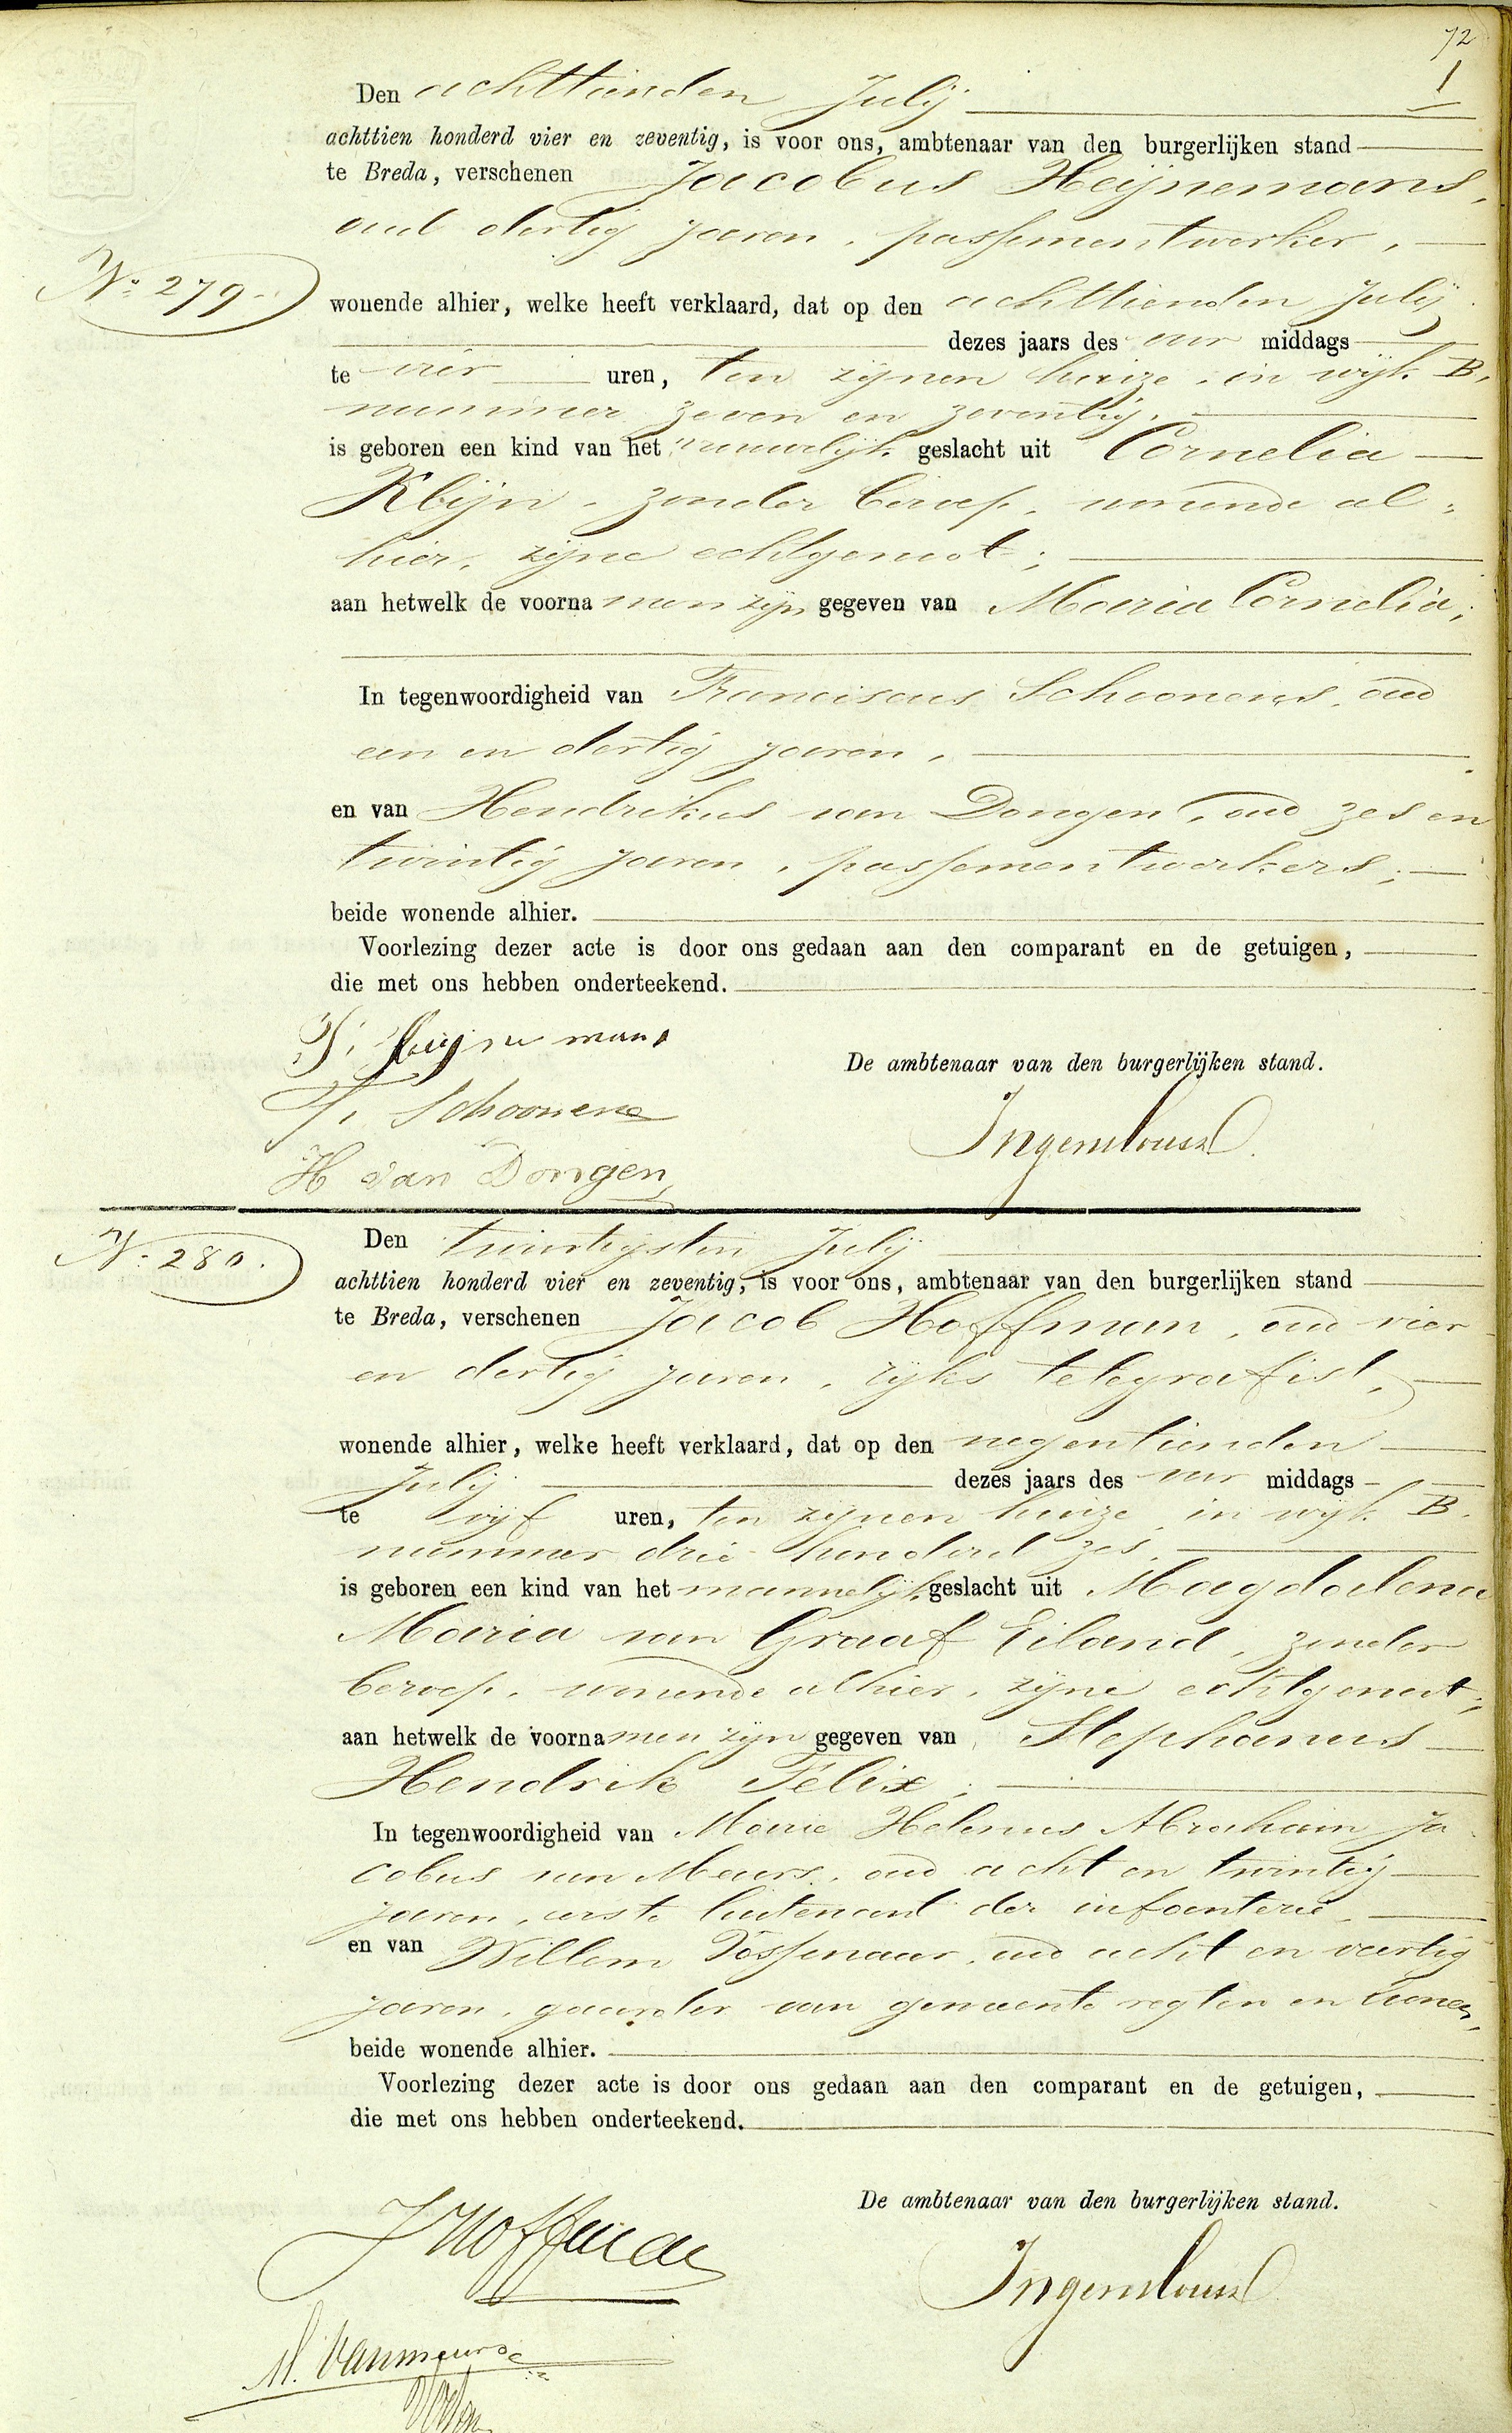 72
1
Den achttienden Julij
achttien honderd vier en zeventig, is voor ons, ambtenaar van den burgerlijken stand
te Breda, verschenen Jacobus Heijnemans,
oud dertig jaren, passementwerker,
No. 279.
wonende alhier, welke heeft verklaard, dat op den achttienden Julij
dezes jaars des voor middags
te vier uren, ten zijnen huize, in wijk B,
nummer zeven en zeventig,
is geboren een kind van het vrouwelijk geslacht uit Cornelia
Klijn, zonder beroep, wonende al-
hier, zijne echtgenoot;
aan hetwelk de voornamen zijn gegeven van Maria Cornelia;
In tegenwoordigheid van Franciscus Schoonens, oud
een en dertig jaren,
en van Hendrikus van Dongen, oud zes en
twintig jaren, passementwerkers;
beide wonende alhier.
Voorlezing dezer acte is door ons gedaan aan den comparant en de getuigen,
die met ons hebben onderteekend.
De ambtenaar van den burgerlijken stand.
Schoonens
H van Dongen
Ingenhousz
N. 280.
Den twintigsten Julij
achttien honderd vier en zeventig, is voor ons, ambtenaar van den burgerlijken stand
te Breda, verschenen Jacob Hoffman, oud vier
en dertig jaren, rijks telegrafist,
wonende alhier, welke heeft verklaard, dat op den negentienden
Julij dezes jaars des voor middags
te vijf uren, ten zijnen huize, in wijk B.
nummer drie honderd zes,
is geboren een kind van het mannelijk geslacht uit Magdalena
Maria van Graaf Eiland, zonder
beroep, wonende alhier, zijne echtgenoot;
aan hetwelk de voornamen zijn gegeven van Stephanus
Hendrik Felix;
In tegenwoordigheid van Marie Helenus Abraham Ja
cobus van Meurs, oud acht en twintig
jaren, eerste luitenant der infanterie,
en van Willem Vossenaar, oud acht en veertig
jaren, gaarder van gemeente regten en
beide wonende alhier.
Voorlezing dezer acte is door ons gedaan aan den comparant en de getuigen,
die met ons hebben onderteekend.
De ambtenaar van den burgerlijken stand.
J Hoffman
Ingenhousz
M. van Meurs